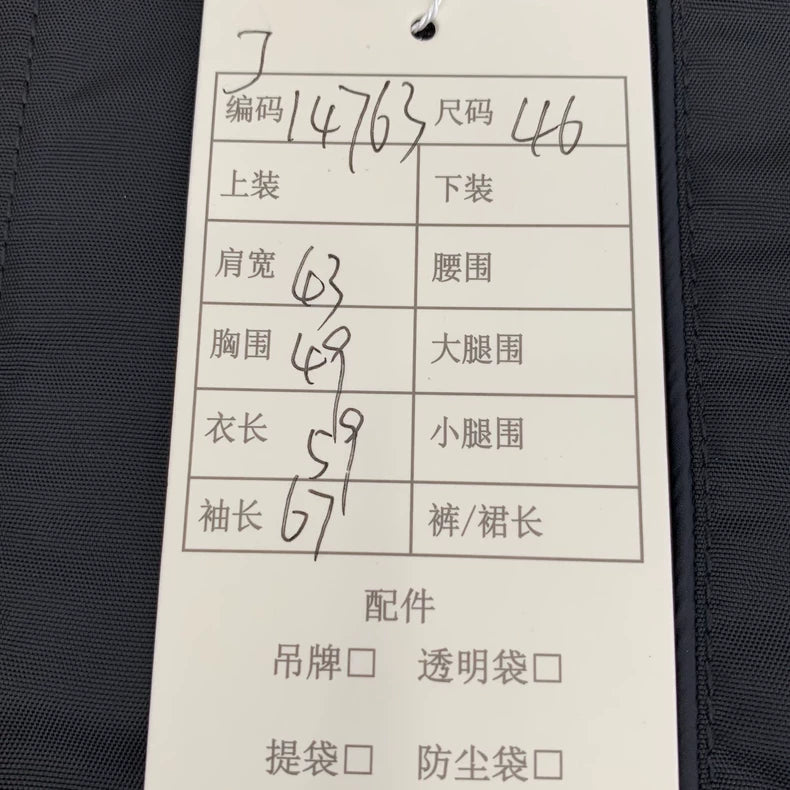 J
编码 14763 尺码 46
上装 下装
肩宽 43 腰围
胸围 49 大腿围
衣长 59 小腿围
袖长 67 裤/裙长
配件
吊牌□ 透明袋□
提袋□ 防尘袋□